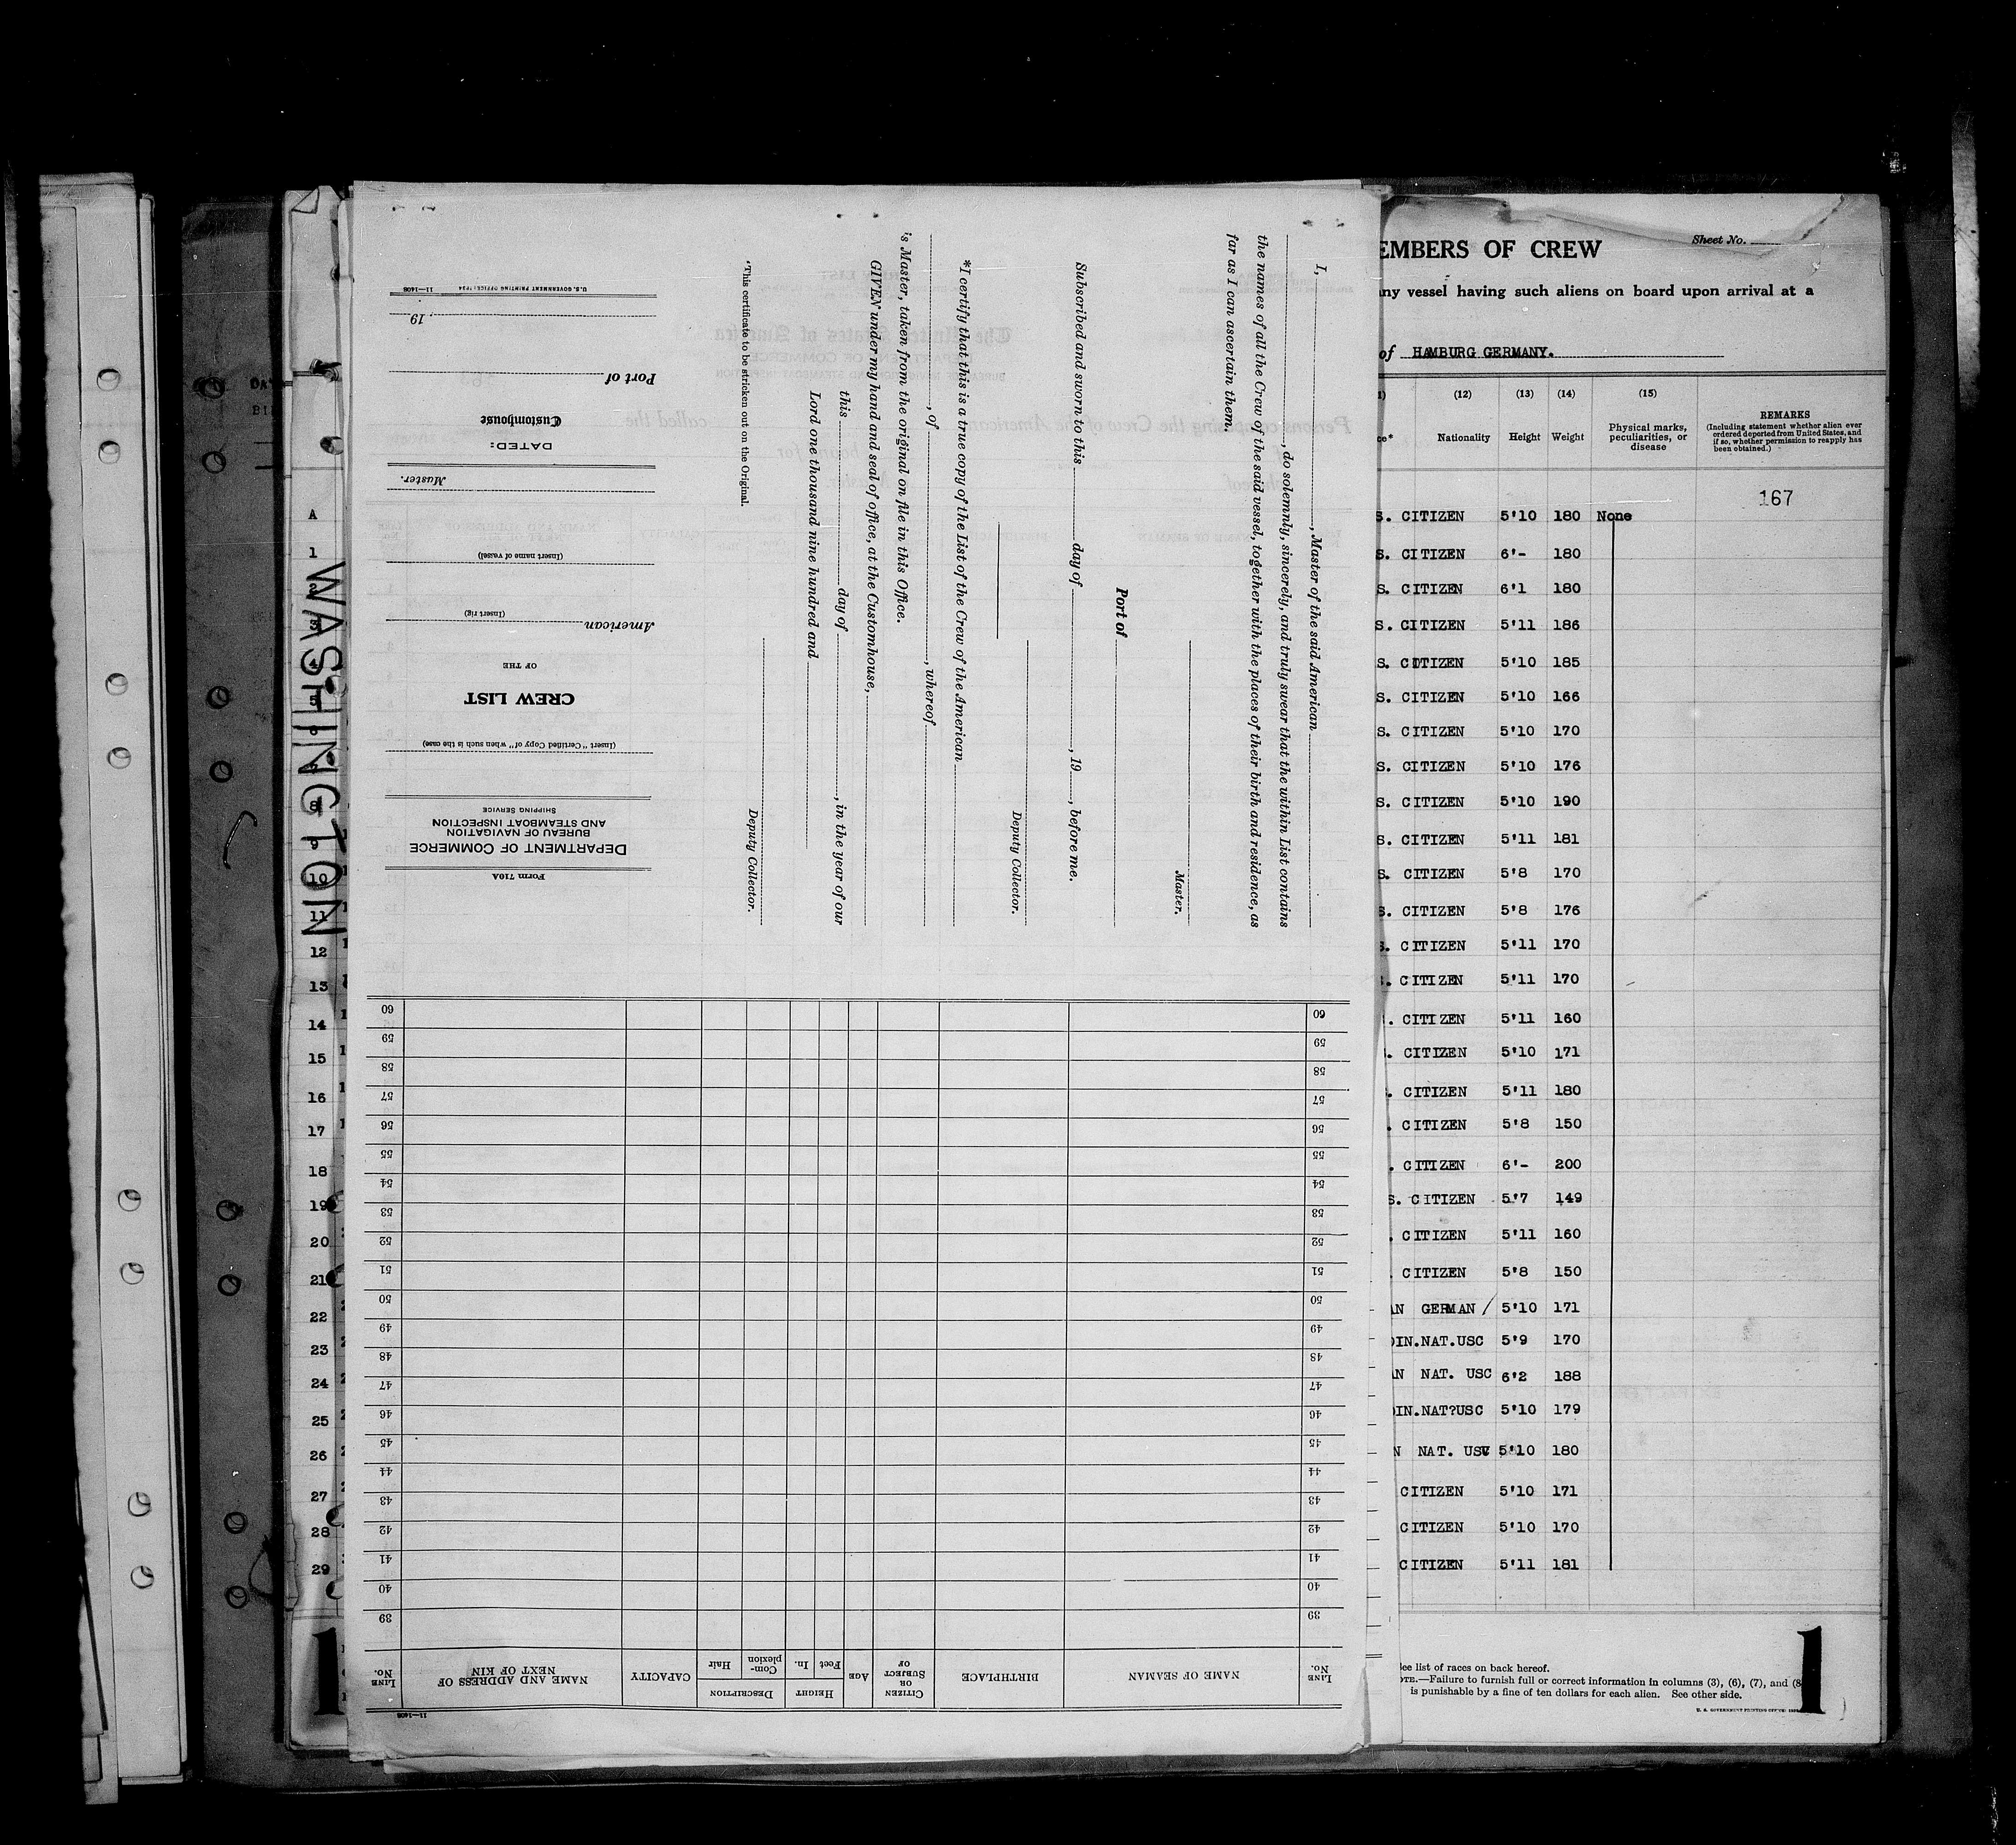 EMBERS OF CREW
Sheet No.
any vessel having such aliens on board upon arrival at a
of HAMBURG GERMANY.
(12) (13) (14) (15)
Nationality Height Weight Physical marks, peculiarities, or disease
REMARKS
(Including statement whether alien ever
ordered deported from United States, and
if so, whether permission to reapply has
been obtained.)
167
S. CITIZEN 5'10 180 None
S. CITIZEN 6'- 180
S. CITIZEN 6'1 180
S. CITIZEN 5'11 186
S. CITIZEN 5'10 185
S. CITIZEN 5'10 166
S. CITIZEN 5'10 170
S. CITIZEN 5'10 176
S. CITIZEN 5'10 190
S. CITIZEN 5'11 181
S. CITIZEN 5'8 170
S. CITIZEN 5'8 176
S. CITIZEN 5'11 170
. CITIZEN 5'11 170
. CITIZEN 5'11 160
. CITIZEN 5'10 171
. CITIZEN 5'11 180
. CITIZEN 5'8 150
. CITIZEN 6'- 200
S. CITIZEN 5'7 149
. CITIZEN 5'11 160
CITIZEN 5'8 150
AN GERMAN / 5'10 171
DIN.NAT.USC 5'9 170
AN NAT. USC 6'2 188
DIN.NAT?USC 5'10 179
N NAT. USC 5'10 180
CITIZEN 5'10 171
CITIZEN 5'10 170
CITIZEN 5'11 181
See list of races on back hereof.
NOTE.—Failure to furnish full or correct information in columns (3), (6), (7), and (8
is punishable by a fine of ten dollars for each alien. See other side.
1
WASHINGTON
A
1
2
3
4
5
6
7
8
9
10
11
12
13
14
15
16
17
18
19
20
21
22
23
24
25
26
27
28
29
1
I, , Master of the said American
, do solemnly, sincerely, and truly swear that the within List contains
the names of all the Crew of the said vessel, together with the places of their birth and residence, as
far as I can ascertain them.
Master.
Port of
Subscribed and sworn to this day of , 19 , before me.
Deputy Collector.
*I certify that this is a true copy of the List of the Crew of the American
, of , whereof
is Master, taken from the original on file in this Office.
GIVEN under my hand and seal of office, at the Customhouse,
this day of , in the year of our
Lord one thousand nine hundred and
Deputy Collector.
*This certificate to be stricken out on the Original.
Form 710A
DEPARTMENT OF COMMERCE
BUREAU OF NAVIGATION
AND STEAMBOAT INSPECTION
SHIPPING SERVICE
(Insert "Certified Copy of" when such is the case)
CREW LIST
OF THE
American
(Insert rig)
(Insert name of vessel)
Master.
DATED:
Customhouse
Port of
, 19 .
U.S. GOVERNMENT PRINTING OFFICE: 1934 11—1408
11—1408
LINE No. NAME OF SEAMAN BIRTHPLACE CITIZEN OR SUBJECT OF AGE HEIGHT Feet In. DESCRIPTION Complexion Hair CAPACITY NAME AND ADDRESS OF NEXT OF KIN LINE No.
39 39
40 40
41 41
42 42
43 43
44 44
45 45
46 46
47 47
48 48
49 49
50 50
51 51
52 52
53 53
54 54
55 55
56 56
57 57
58 58
59 59
60 60